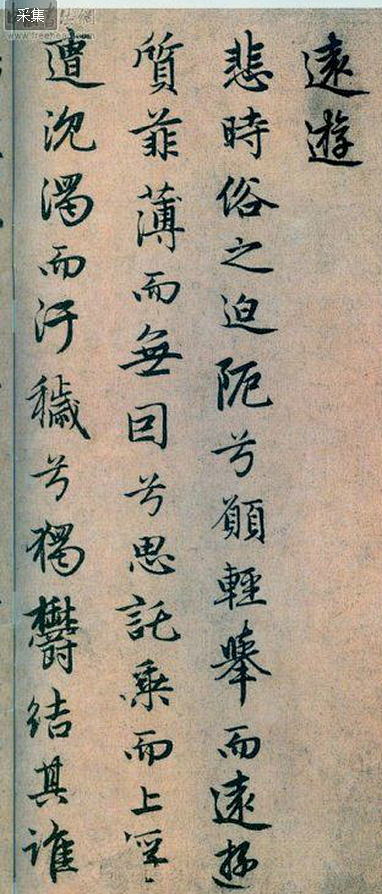 遠遊
悲時俗之迫阨兮願輕舉而遠遊
質菲薄而無因兮思託乘而上浮
遭沈濁而汙穢兮獨鬱結其誰
采集